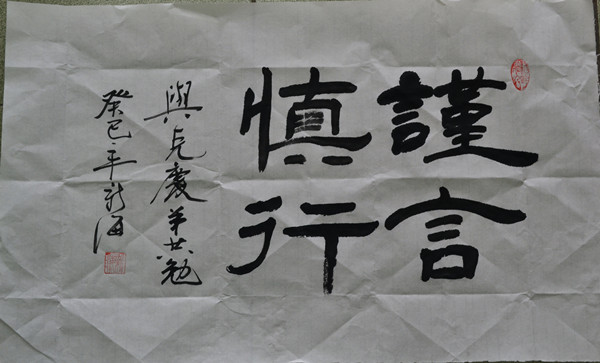 謹言
慎行
與克慶弟共勉
癸巳年新海